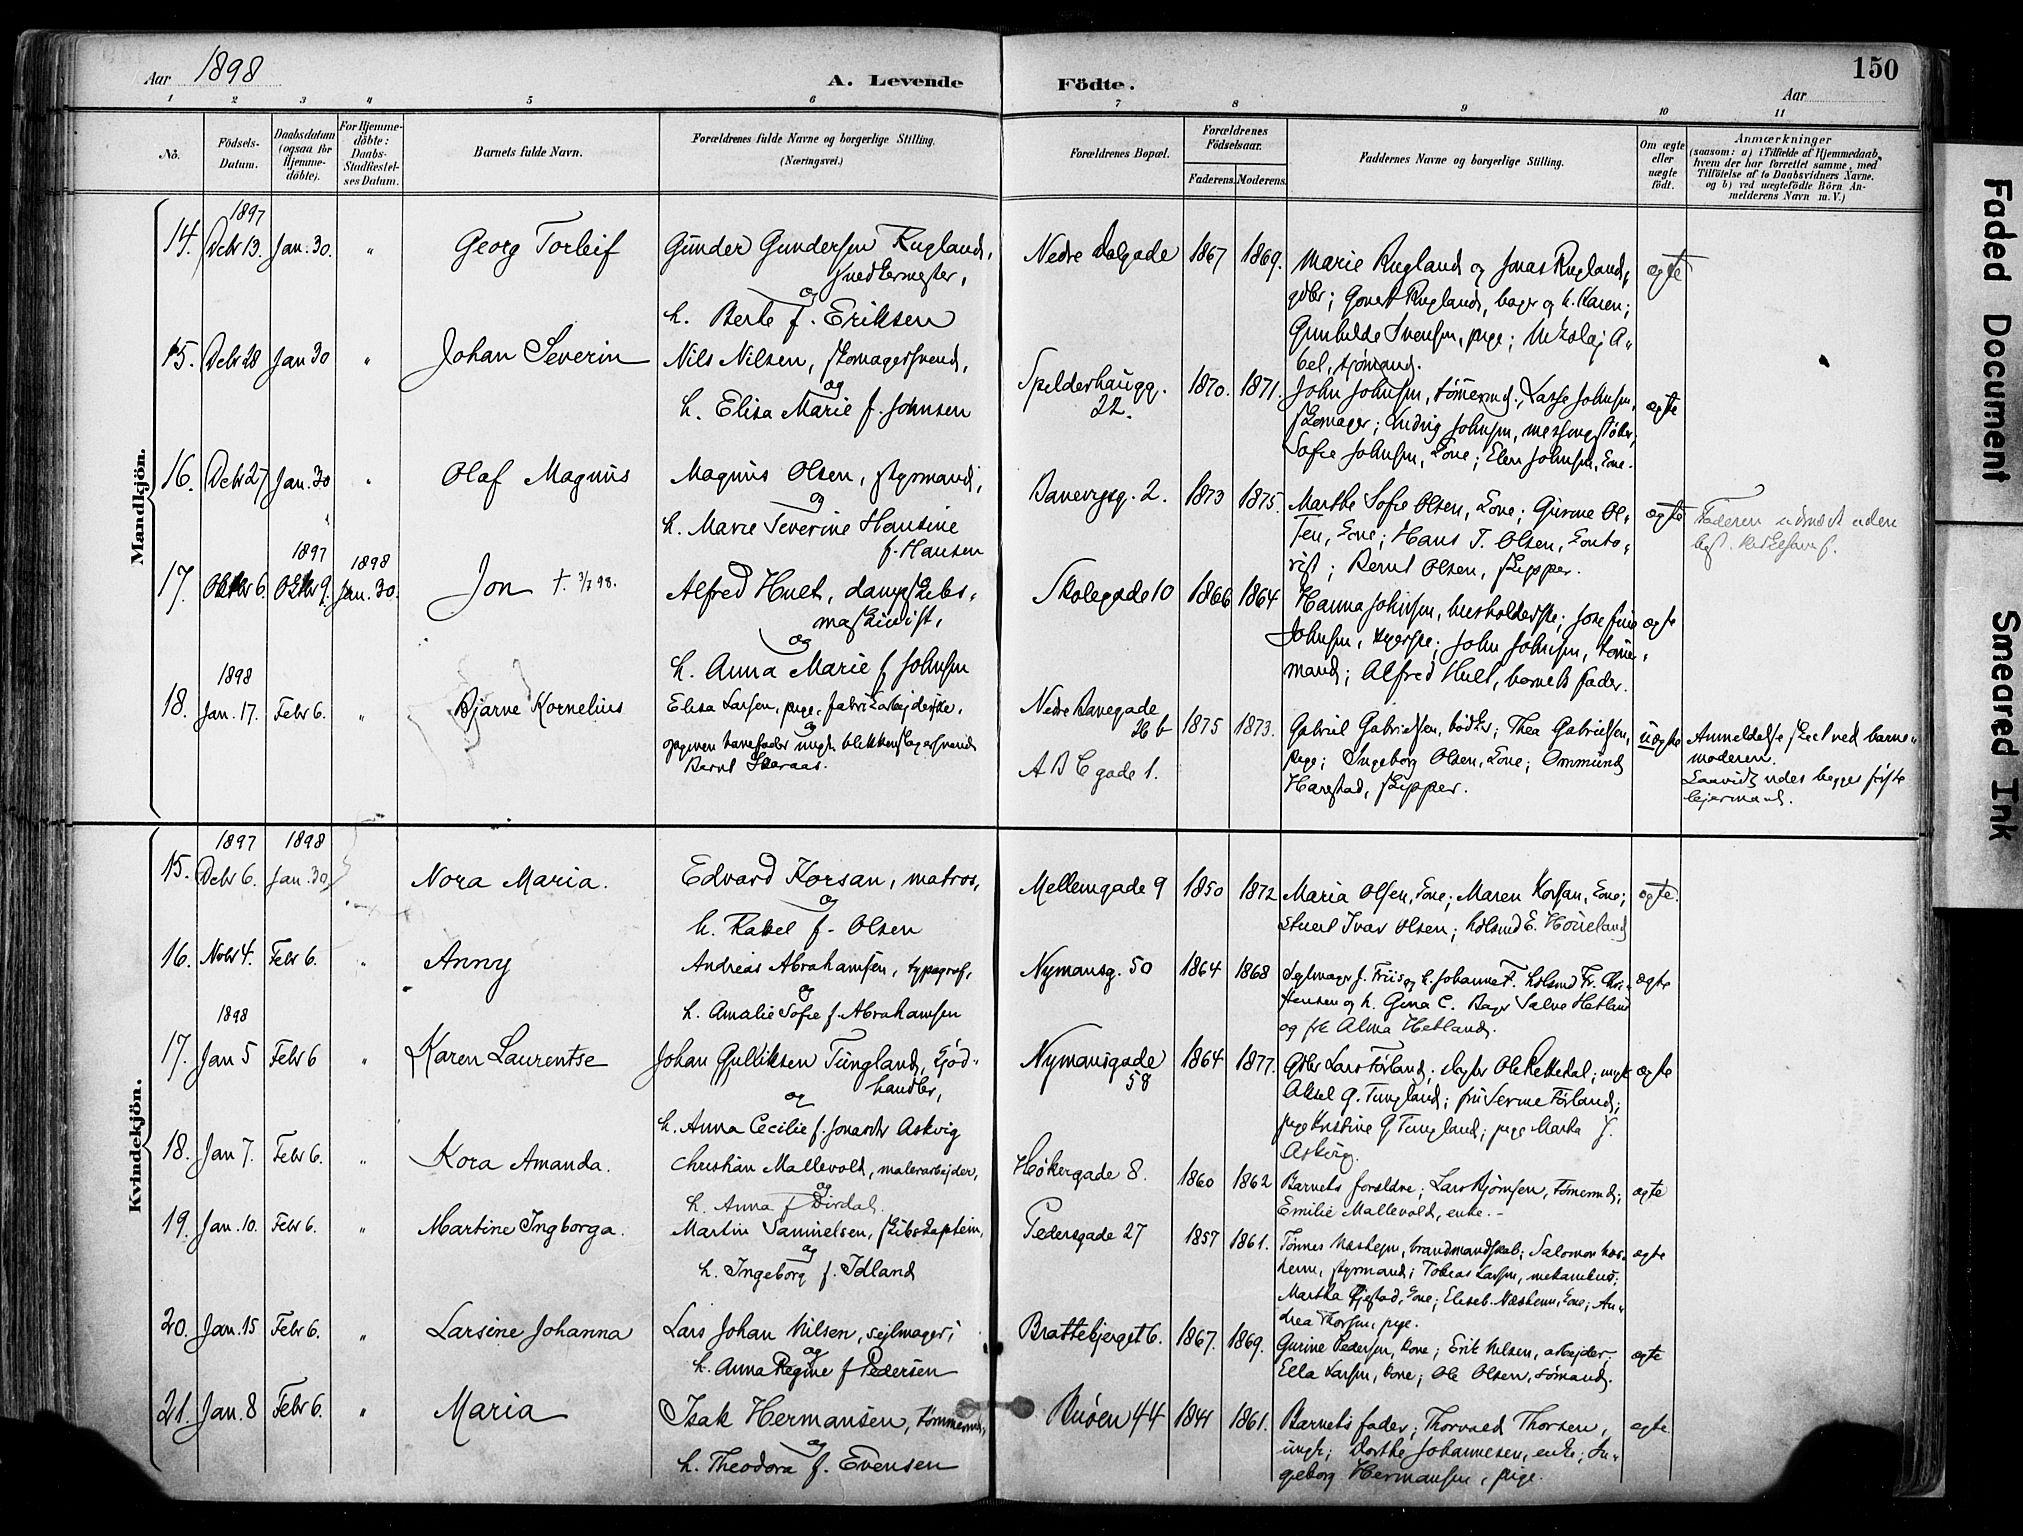 Aar 1898
A. Levende Födte.
150
Aar
1 2 3 4 5 6 7 8 9 10 11
No.
Födsels-Datum.
Daabsdatum (ogsaa for Hjemme-döbte).
For Hjemme-döbte: Daabs-Stadfæstel-ses Datum.
Barnets fulde Navn.
Forældrenes fulde Navne og borgerlige Stilling. (Næringsvei.)
Forældrenes Bopæl.
Forældrenes Födselsaar.
Faderens. Moderens.
Faddernes Navne og borgerlige Stilling.
Om ægte eller uægte födt.
Anmærkninger
(saasom: a) i Tilfælde af Hjemmedaab, hvem der har forrettet samme, med Tilföielse af to Daabsvidners Navne. og b) ved uægtefödte Börn An-melderens Navn m. V.)
Mandkjön.
1897
14. Debr 13. Jan. 30. " Georg Torleif
Gunder Gundersen Rugland, snedkermester,
og
h. Berte f. Eriksen
Nedre Dalgade 1867 1869.
Marie Rugland og Jonas Rugland,
Rugland, bager og h. Karen;
Gunhilde Svensen, pige; Nikolaj A-
bel, sjømand.
ægte
15. Debr 28 Jan 30 " Johan Severin
Nils Nilsen, skomagersvend,
og
h. Elisa Marie f. Johnsen
Spilderhaugg. 22. 1870. 1871.
John Johnsen, tømermd.; Lasse Johnsen,
skomager; Ludvig Johnsen, messingstøber,
Sofie Johnsen, Kone; Elen Johnsen, Kone.
ægte
16. Debr 27 Jan. 30 " Olaf Magnus
Magnus Olsen, styrmand,
og
h. Marie Severine Hansine
f. Hansen
Banevigsg. 2. 1873 1875.
Marthe Sofie Olsen, Kone; Gurine Ol-
sen, Kone; Hans T. Olsen, Konto-
rist; Bernt Olsen, skipper.
ægte
Faderen udmeldt uden
1897 1898
17. Oktbr 6. Oktbr 9. Jan. 30. Jon † 3/2 98.
Alfred Hult, dampskibs-
maskinist,
og
h. Anna Marie f Johnsen
Skolegade 10 1866 1864
Hanna Johnsen, husholderske; Josefine
Johnsen, syerske; John Johnsen, tømer-
mand; Alfred Hult, barnets fader.
ægte
1898
18. Jan. 17. Febr 6. " Bjarne Kornelius
Elisa Larsen, pige, fabrikarbejderske,
og
opgiven barnefader ungk. blikkenslagersvend
Bernt Skeraas.
Nedre Banegade 26 b 1875 1873.
A B C gade 1.
Gabriel Gabrielsen, bødker; Thea Gabrielsen,
pige; Ingeborg Olsen, Kone; Ommund
Harestad, skipper.
uægte
Anmeldelse skeet ved barne-
moderen.
begges første
lejermaal.
Kvindekjön.
1897 1898
15. Debr 6. Jan. 30 Nora Maria.
Edvard Korsan, matros,
og
h. Rakel f. Olsen
Mellemgade 9 1850 1872
Maria Olsen, Kone; Maren Korsan, Kone;
Ivar Olsen; E. Høueland
ægte.
16. Nobr 4. Febr 6. " Anny
Andreas Abrahamsen, typograf,
og
h. Amalie Sofie f. Abrahamsen
Nymansg. 50 1864 1868
Sejlmager J. Friis og h. Johanne F. Fr. Chri-
stensen og h. Gina C. Bager Salve Hetland
og frk Alma Hetland.
ægte
1898
17. Jan 5 Febr 6 " Karen Laurentse
Johan Gulliksen Tungland, Kjød-
handler,
og
h. Anna Cecilie f. Askvig
Nymansgade 58 1864 1877.
Gdbr Lars Førland; Ole Rettedal; ungk
Aksel G. Tungland; fru Serine Førland;
pige Kristine G Tungland; pige Marta J.
Askvig.
ægte
18. Jan 7. Febr 6. " Kora Amanda.
Christian Mallevold, malerarbejder,
og
h. Anna f Dirdal.
Høkergade 8. 1860 1862
Barnets forældre; Lars Bjørnsen, tømermd;
Emilie Mallevold, enke. -
ægte
19. Jan. 10. Febr 6. " Martine Ingborga.
Martin Samuelsen, skibskaptein,
og
h. Ingeborg f. Idland
Pedersgade 27 1857 1861.
Tønnes Næsheim, brandmandskab; Salomon Næs-
heim, styrmand; Tobias Larsen, mekanikus;
Martha Kone; Eliseb. Næsheim, Kone; An-
drea Thorsen, pige.
ægte
20. Jan. 15 Febr 6. " Larsine Johanna
Lars Johan Nilsen, sejlmager,
og
h. Anna Regine f Pedersen
Brattebjerget 6. 1867. 1869.
Gurine Pedersen, kone; Erik Nilsen, arbejder;
Ella Larsen, kone; Ole Olsen, sømand.
ægte
21. Jan. 8 Febr 6. " Maria
Isak Hermansen, tømmermd,
og
h. Theodora f. Evensen
Buøen 44 1841 1861.
Barnets fader; Thorvald Thorsen,
ungk; Dorthe Johannesen, enke; In-
geborg Hermansen, pige.
ægte
Faded Document
Smeared Ink